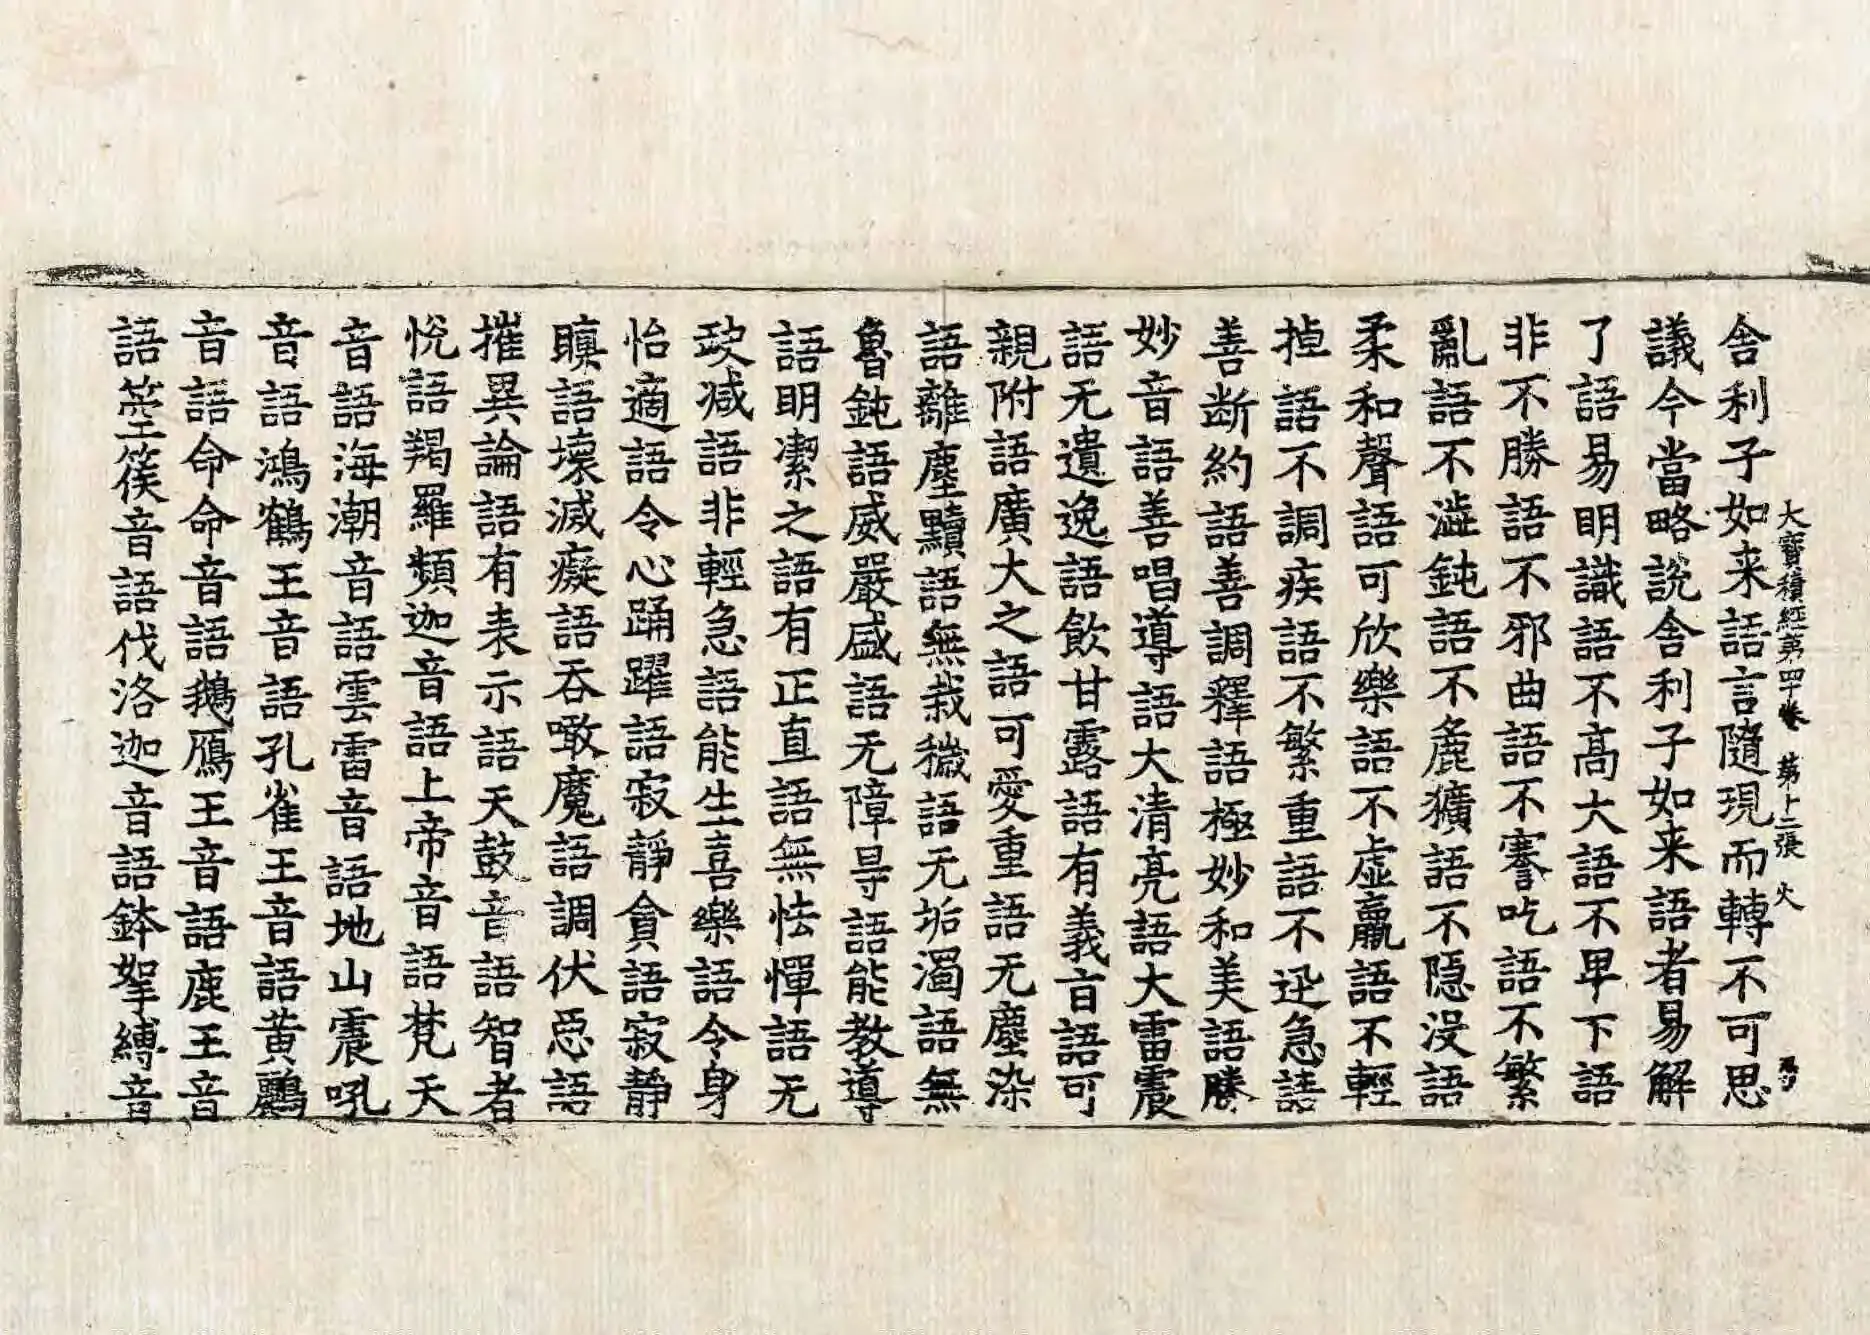 大寶積經第四十卷　第十二張　火
舍利子如来語言隨現而轉不可思
議今當略說舍利子如来語者易解
了語易明識語不高大語不卑下語
非不勝語不邪曲語不謇吃語不繁
亂語不澁鈍語不麁獷語不隠没語
柔和聲語可欣樂語不虛羸語不輕
掉語不調疾語不繁重語不迅急語
善断約語善調釋語極妙和美語勝
妙音語善唱導語大清亮語大雷震
語无遺逸語飲甘露語有義旨語可
親附語廣大之語可愛重語无塵染
語離塵黷語無栽穢語无垢濁語無
魯鈍語威嚴盛語无障㝵語能教導
語明潔之語有正直語無怯憚語无
𡙇减語非輕急語能生喜樂語令身
怡適語令心踊躍語寂靜貪語寂靜
瞋語壞滅癡語吞噉魔語調伏惡語
摧異論語有表示語天鼓音語智者
悅語羯羅頻迦音語上帝音語梵天
音語海潮音語雲雷音語地山震吼
音語鴻鶴王音語孔雀王音語黄鸝
音語命命音語鵝鴈王音語鹿王音
語箜篌音語伐洛迦音語鉢拏縛音